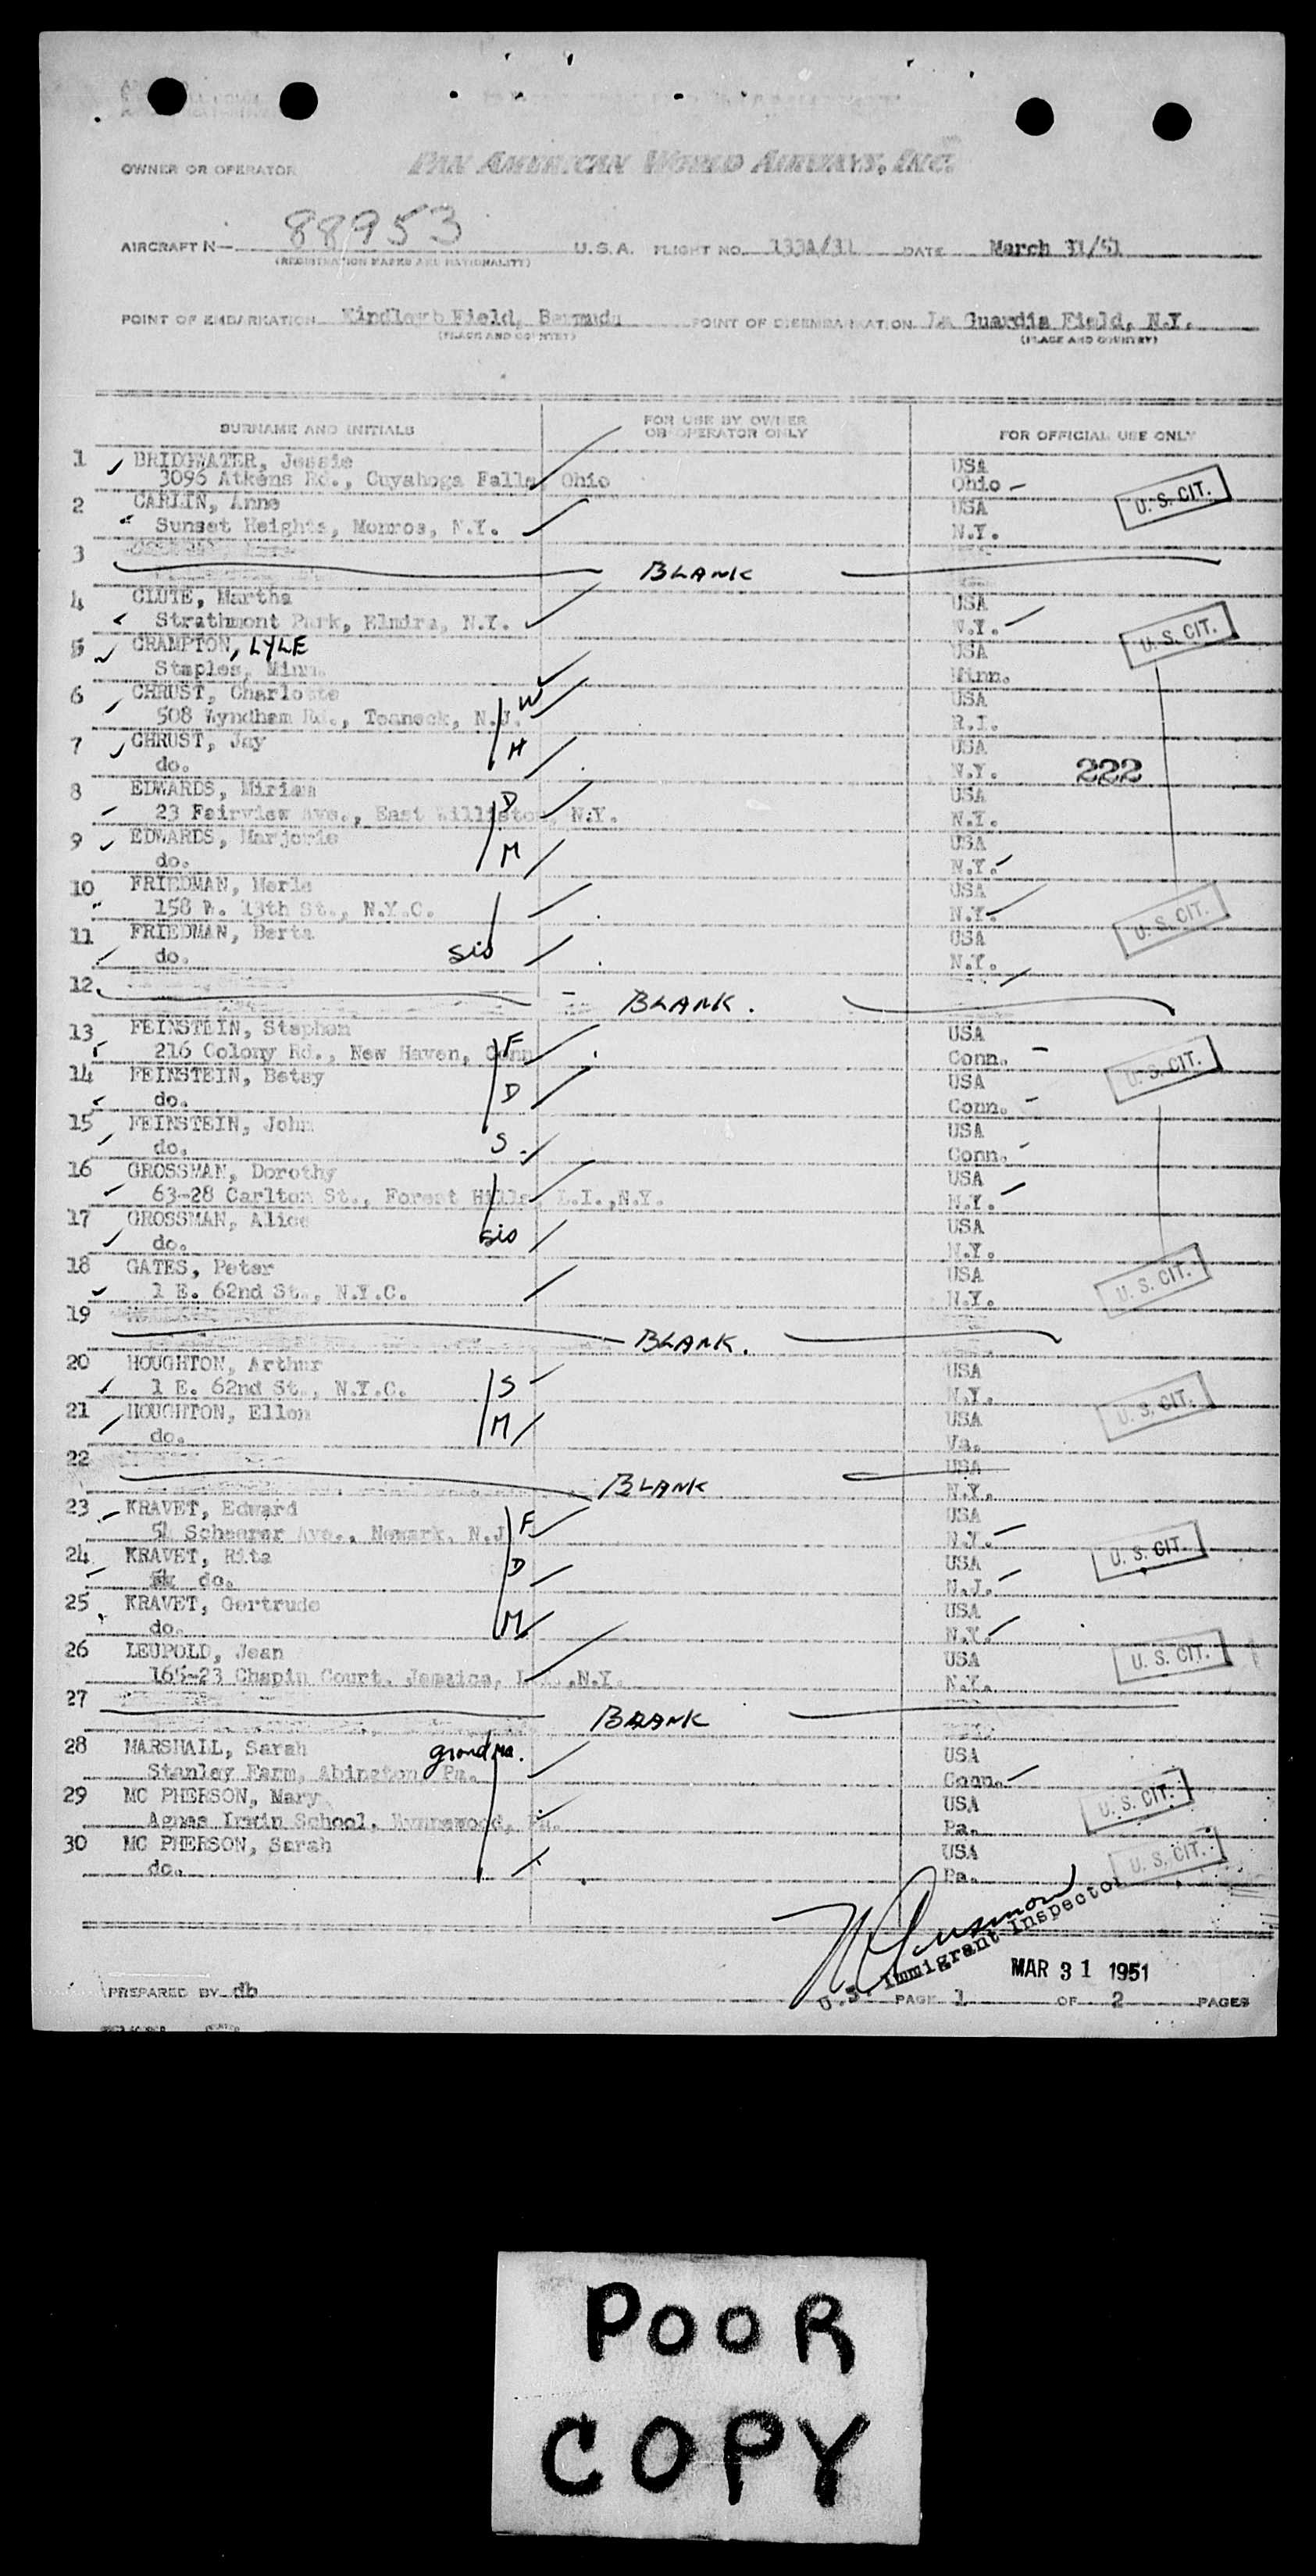 OWNER OR OPERATOR PAN AMERICAN WORLD AIRWAYS, INC.
AIRCRAFT N— 88953 U.S.A. FLIGHT NO. 133A/31 DATE March 31/51
(REGISTRATION MARKS AND NATIONALITY)
POINT OF EMBARKATION Field, Bermuda POINT OF DISEMBARKATION La Guardia Field, N.Y.
(PLACE AND COUNTRY) (PLACE AND COUNTRY)
SURNAME AND INITIALS FOR USE BY OWNER OR OPERATOR ONLY FOR OFFICIAL USE ONLY
1 BRIDGWATER, Jessie USA
3096 Atkens Rd., Cuyahoga Falls, Ohio Ohio U. S. CIT.
2 CARLIN, Anne USA
Sunset Heights, Monroe, N.Y. N.Y.
3
BLANK
4 CLUTE, Martha USA
Strathmont Park, Elmira, N.Y. N.Y. U. S. CIT.
5 CRAMPTON, LYLE USA
Staples, Minn. Minn.
6 CHRUST, Charlotte W USA
508 Wyndham Rd., Teaneck, N.J. R.I.
7 CHRUST, Jay H USA
do. N.Y. 222
8 EDWARDS, Miriam D USA
23 Fairview Ave., East Williston, N.Y. N.Y.
9 EDWARDS, Marjorie M USA
do. N.Y.
10 FRIEDMAN, Merle USA
158 W. 13th St., N.Y.C. N.Y. U. S. CIT.
11 FRIEDMAN, Berta USA
do. sis N.Y.
12
BLANK.
13 FEINSTEIN, Stephen F USA
216 Colony Rd., New Haven, Conn Conn. U. S. CIT.
14 FEINSTEIN, Betsy D USA
do. Conn.
15 FEINSTEIN, John USA
do. S. Conn.
16 GROSSMAN, Dorothy USA
63-28 Carlton St., Forest Hills, L.I.,N.Y. N.Y.
17 GROSSMAN, Alice sis USA
do. N.Y.
18 GATES, Peter USA
1 E. 62nd St., N.Y.C. N.Y. U. S. CIT.
19
BLANK.
20 HOUGHTON, Arthur S USA
1 E. 62nd St., N.Y.C. N.Y. U. S. CIT.
21 HOUGHTON, Ellen M USA
do. Va.
22 USA
BLANK N.Y.
23 KRAVET, Edward F USA
54 Scheerer Ave., Newark, N.J. N.Y.
24 KRAVET, Rita D USA U. S. CIT.
do. N.J.
25 KRAVET, Gertrude M USA
do. N.Y.
26 LEUPOLD, Jean USA U. S. CIT.
165-23 Chapin Court, Jamaica, L.I.,N.Y. N.Y.
27
BLANK
28 MARSHALL, Sarah grandma. USA
Stanley Farm, Abington, Pa. Conn.
29 MC PHERSON, Mary USA U. S. CIT.
Agnes Irwin School, Wynnewood, Pa. Pa.
30 MC PHERSON, Sarah USA
do. Pa. U. S. CIT.
U.S. Immigrant Inspector
MAR 31 1951
PREPARED BY db PAGE 1 OF 2 PAGES
POOR
COPY